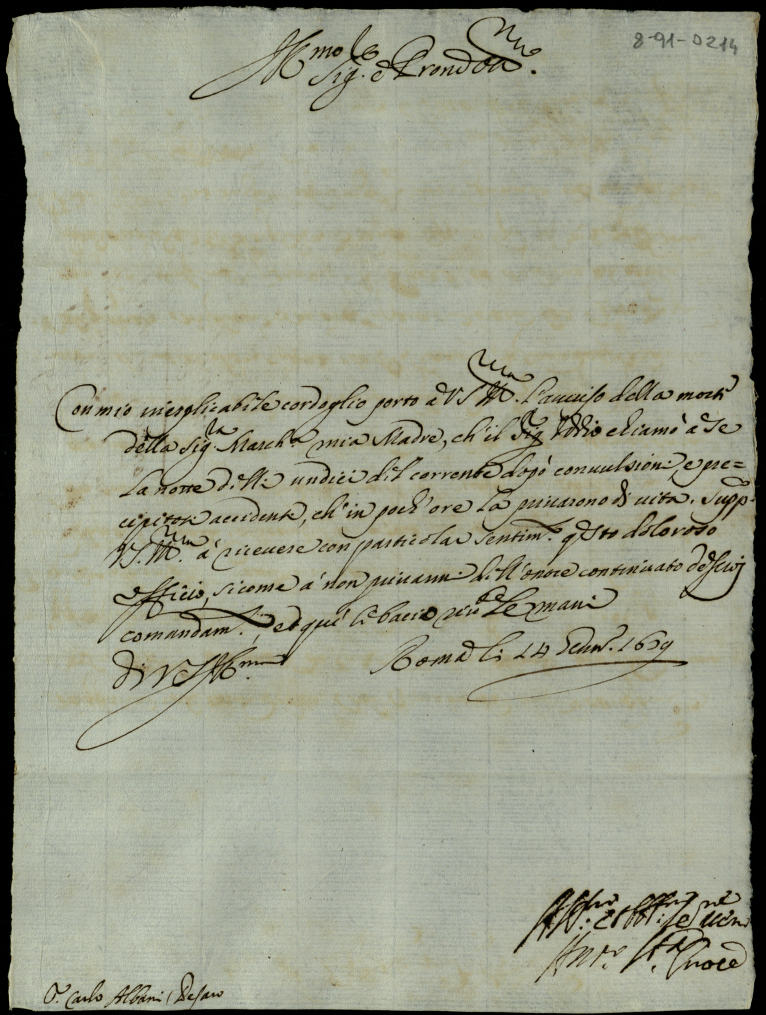 8-91-0214
Ill.mo Sig.re e Pron Oss.mo
Con mio inesplicabile cordoglio porto à VS Ill.ma l'auuiso della morte
della Sig.ra March.a mia Madre, ch'il Sig.r Iddio chiamò à Se
la notte delli undici del corrente dopò conuulsione, e pre=
cipitoso accidente, ch'in poch'ore la priuarono di uita. Supp.co
VS. Ill.ma à riceuere con particolar sentim.to questo doloroso
officio, sicome à non priuarmi dell'onore continuato de suoi
comandam.ti, e quì le bacio le mani
Di VS Ill.ma Roma li 14 1689
Ant.o S.ta Croce
S. Carlo Albani Pesaro